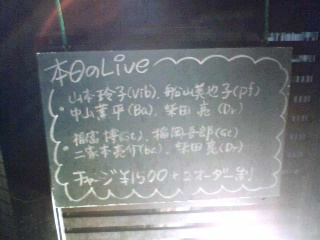 本日のLive
山本玲子(Vib)、船山美也子(pf)
中山葉平(Ba)、柴田亮(Dr)
福富博(Gt)、福岡吾郎(Gt)
二家本亮介(bc)、柴田亮(Dr)
チャージ¥1500+2オーダー制